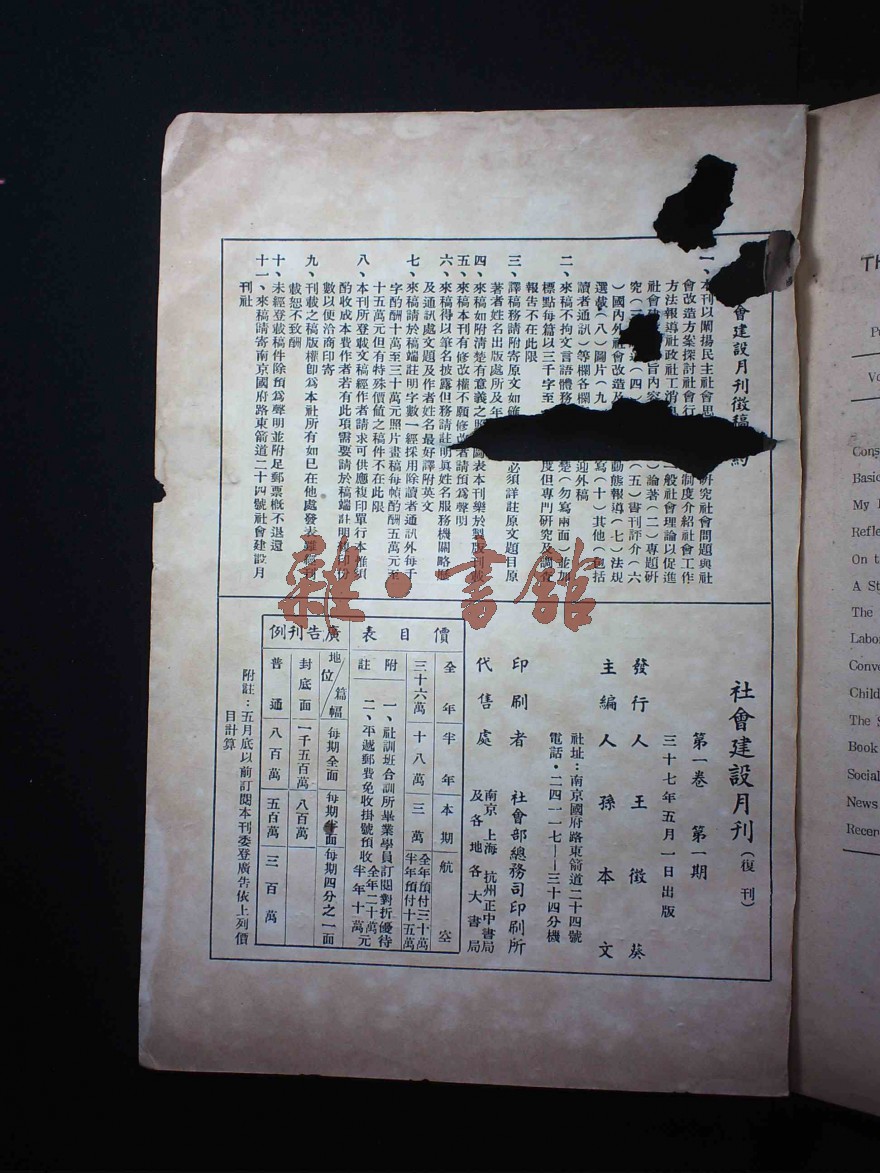 會建設月刊徵稿
一、本刊以闡揚民主社會思 研究社會問題與社
會改造方案探討社會行 制度介紹社會工作
方法報導社政社工消 一般社會理論以促進
社會建 旨內容 )論著(二)專題研
究(三 (四) (五)書刊評介(六
)國內外社會改造及 動態報導(七)法規
選載(八)圖片(九 寫(十)其他(包括
讀者通訊)等欄各欄 迎外稿
二、來稿不拘文言語體務 楚(勿寫兩面)並加
標點每篇以三千字至 度但專門研究及調查
報告不在此限
三、譯稿務請附寄原文如 必須詳註原文題目原
著者姓名出版處所及年
四、來稿如附清楚有意義之照 圖表本刊樂於製版刊載
五、來稿本刊有修改權不願修改者請預為聲明
六、來稿得以筆名披露但務請註明真姓名服務機關略歷
及通訊處文題及作者姓名最好譯附英文
七、來稿請於稿端註明字數一經採用除讀者通訊外每千
字酌酬十萬至三十萬元照片畫稿每幀酌酬五萬元至
十五萬元但有特殊價值之稿件不在此限
八、本刊所登載文稿經作者請求可供應複印單行本惟須
酌收成本費作者若有此項需要請於稿端註明 印份
數以便洽商印寄
九、刊載之稿版權卽為本社所有如已在他處發表 刊
載恕不致酬
十、未經登載稿件除預為聲明並附足郵票概不退還
十一、來稿請寄南京國府路東箭道二十四號社會建設月
刊社
社會建設月刊(復刊)
第一卷 第一期
三十七年五月一日出版
發行人 王徵葵
主編人 孫本文
社址:南京國府路東箭道二十四號
電話・二四一一七——三十四分機
印刷者 社會部總務司印刷所
代售處 南京 上海 杭州正中書局
及各地各大書局
價目表
全年 半年 本期 航空
三十六萬 十八萬 三萬 全年預付三十萬 半年預付十五萬
附註
一、社訓班合訓所畢業學員訂閱對折優待
二、平遞郵費免收掛號預收全年二十萬元半年十萬元
廣告刊例
地位/篇幅 每期全面 每期半面 每期四分之一面
封底面 一千五百萬 八百萬
普通 八百萬 五百萬 三百萬
附註:五月底以前訂閱本刊委登廣告依上列價
目計算
雜・書館
TH
P
Vo
Cons
Basic
My
Refle
On t
A St
The
Labor
Conve
Child
The S
Book
Social
News
Recen